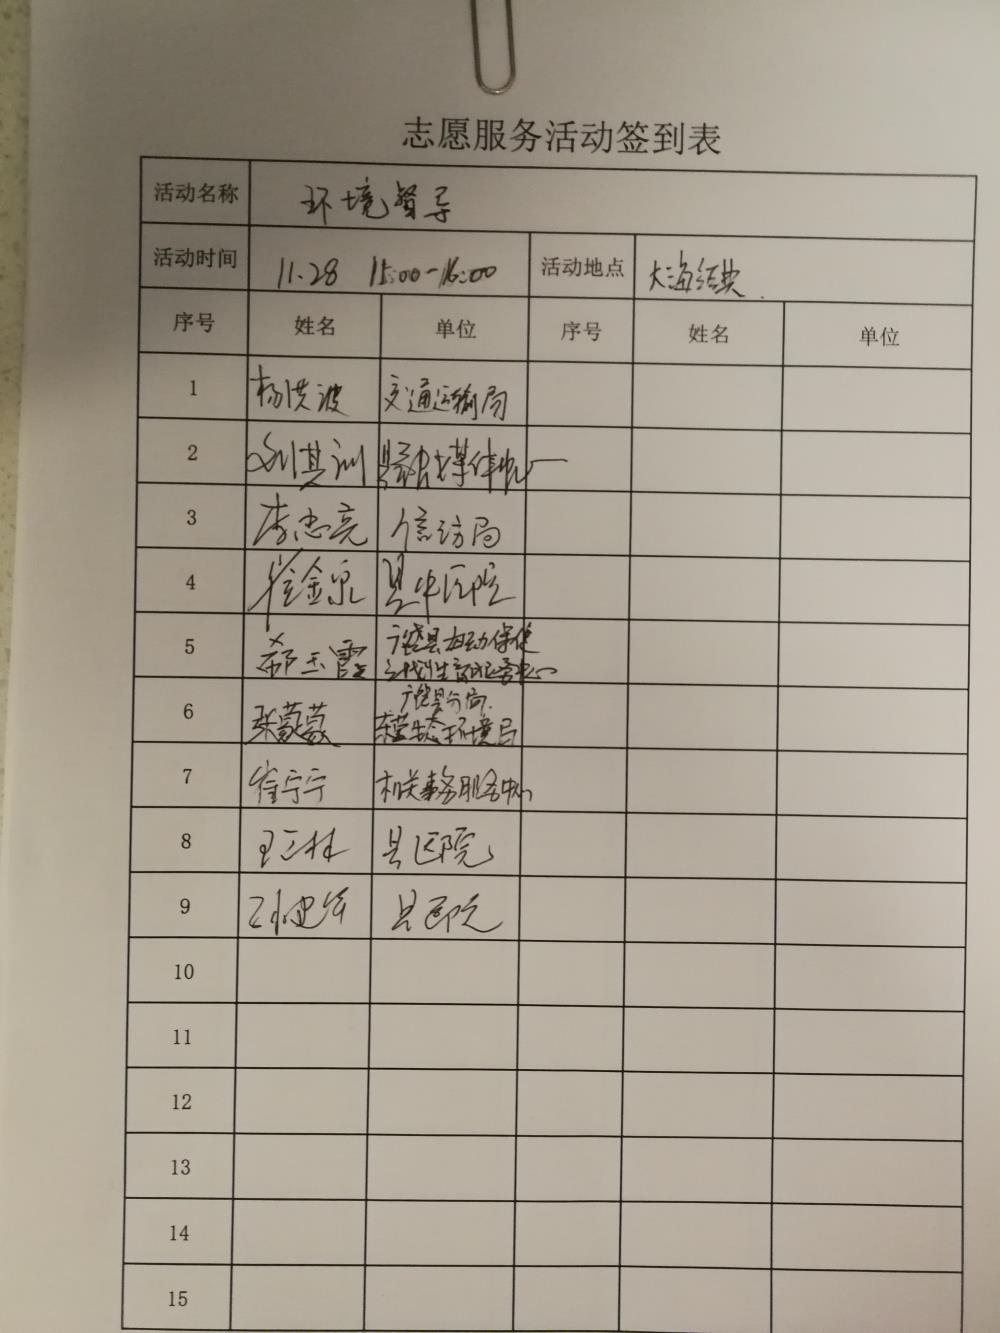 志愿服务活动签到表
活动名称 环境督导
活动时间 11.28 15:00-16:00 活动地点 大海经典
序号 姓名 单位 序号 姓名 单位
1 杨洪波 交通运输局
2 刘其训 县融媒体中心
3 李忠亮 信访局
4 崔金泉 县中医院
5 郝玉霞 广饶县妇幼保健
计划生育服务中心
6 张蒙蒙 广饶县分局
东营生态环境局
7 崔宁宁 机关事务服务中心
8 王三林 县医院
9 县医院
10
11
12
13
14
15